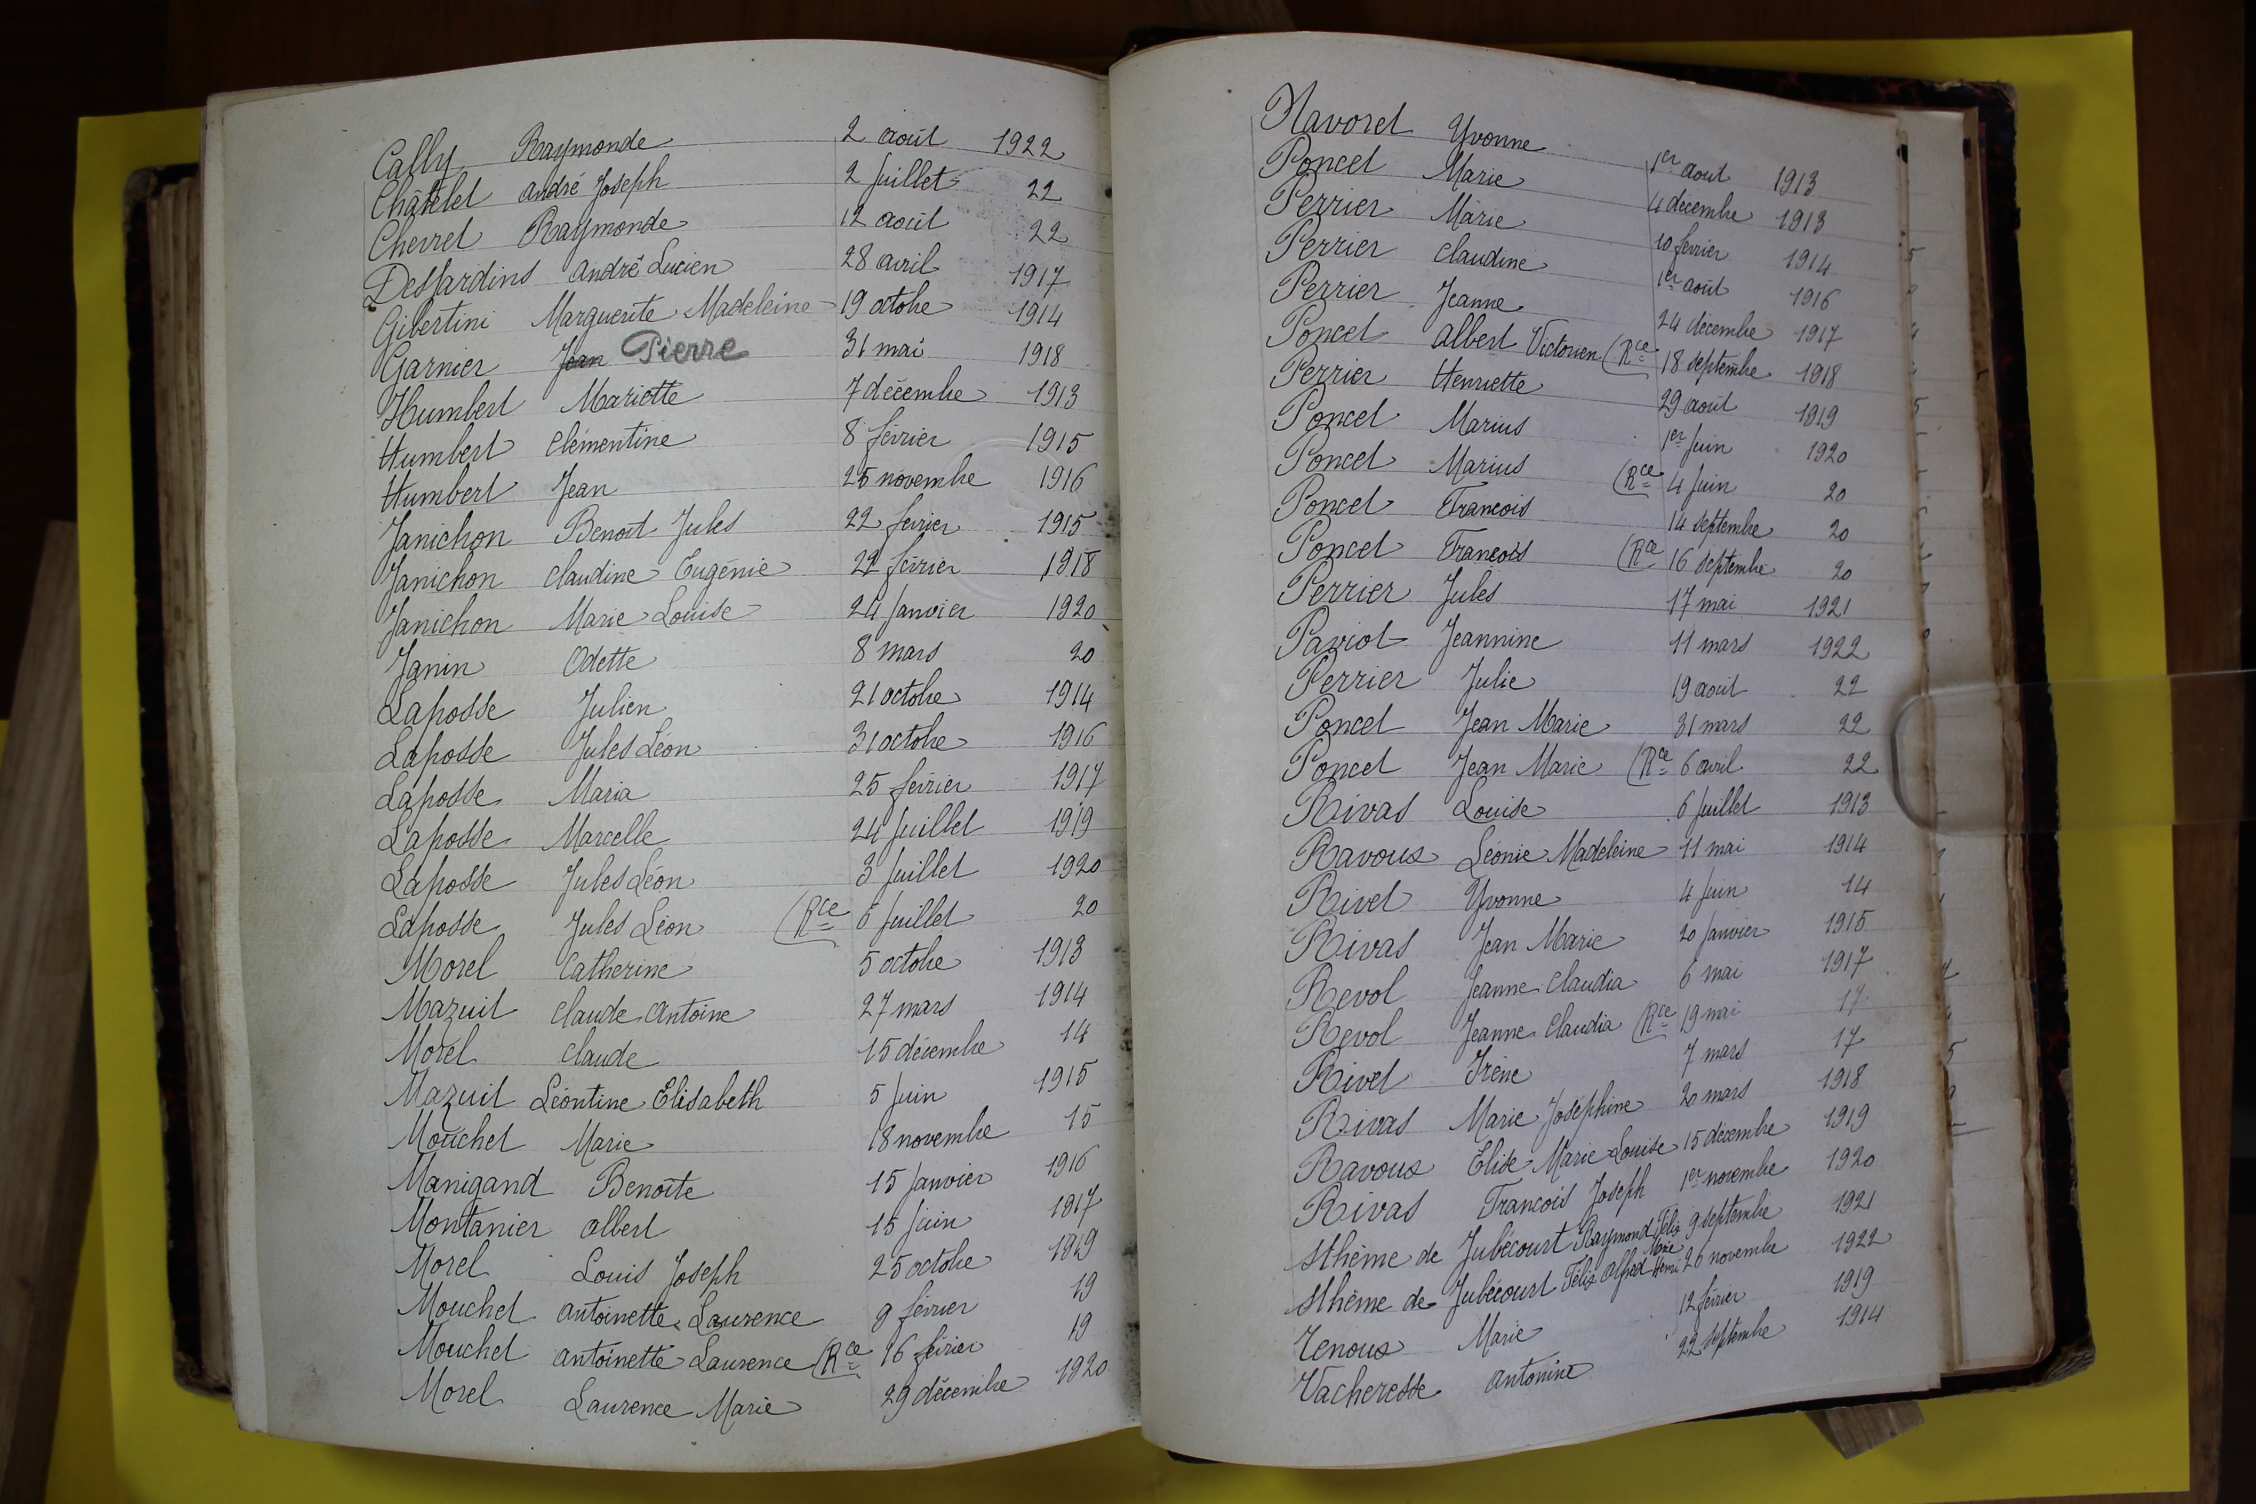 Cally Raymonde 2 août 1922
Châtelet André Joseph 2 Juillet 22
Chevret Raymonde 12 août 22
Desjardins André Lucien 28 avril 1917
Gibertini Marguerite Madeleine 19 octobre 1914
Garnier Jean Pierre 31 mai 1918
Humbert Mariette 7 décembre 1913
Humbert Clémentine 8 février 1915
Humbert Jean 25 novembre 1916
Janichon Benoit Jules 22 février 1915
Janichon Claudine Eugénie 22 février 1918
Janichon Marie Louise 24 Janvier 1920
Janin Odette 8 mars 20
Laposse Julien 21 octobre 1914
Laposse Jules Léon 31 octobre 1916
Laposse Maria 25 février 1917
Laposse Marcelle 24 Juillet 1919
Laposse Jules Léon 3 Juillet 1920
Laposse Jules Léon (Rce 6 Juillet 20
Morel Catherine 5 octobre 1913
Mazuit Claude Antoine 27 mars 1914
Morel Claude 15 décembre 14
Mazuit Léontine Elisabeth 5 Juin 1915
Mouchet Marie 18 novembre 15
Manigand Benoîte 15 Janvier 1916
Montanier Albert 15 Juin 1917
Morel Louis Joseph 25 octobre 1919
Mouchet Antoinette Laurence 9 février 19
Mouchet Antoinette Laurence (Rce 16 février 19
Morel Laurence Marie 29 décembre 1920
Navoret Yvonne 1er août 1913
Poncet Marie 4 décembre 1913
Perrier Marie 10 février 1914
Perrier Claudine 1er août 1916
Perrier Jeanne 24 décembre 1917
Poncet Albert Victorien (Rce 18 septembre 1918
Perrier Henriette 29 août 1919
Poncet Marius 1er Juin 1920
Poncet Marius (Rce 4 Juin 20
Poncet Francois 14 septembre 20
Poncet Francois (Rce 16 septembre 20
Perrier Jules 17 mai 1921
Paviot Jeannine 11 mars 1922
Perrier Julie 19 août 22
Poncet Jean Marie 31 mars 22
Poncet Jean Marie (Rce 6 avril 22
Rivas Louise 6 Juillet 1913
Ravoux Léonie Madeleine 11 mai 1914
Rivet Yvonne 4 Juin 14
Rivas Jean Marie 20 Janvier 1915
Revol Jeanne Claudia 6 mai 1917
Revol Jeanne Claudia (Rce 19 mai 17
Rivet Irène 7 mars 17
Rivas Marie Joséphine 20 mars 1918
Ravoux Elise Marie Louise 15 décembre 1919
Rivas Francois Joseph 1er novembre 1920
Sthème de Jubécourt Raymond Félix 9 septembre 1921
Sthème de Jubécourt Félix Alfred Marie Henri 26 novembre 1922
Tenoux Marie 12 février 1919
Vacheresse Antonine 22 septembre 1914